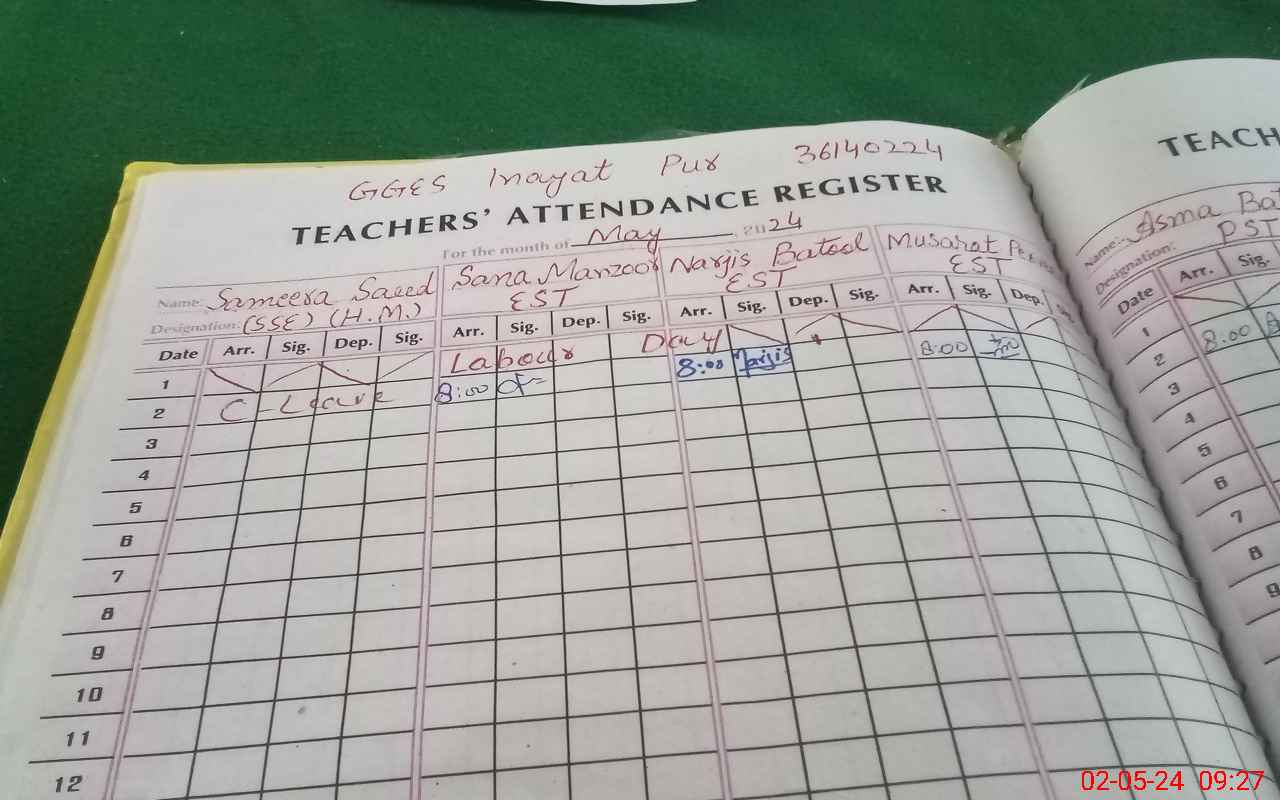 GGES Inayat Pur 36140224
TEACHERS' ATTENDANCE REGISTER
For the month of May 2024
Name: Sameera Saeed Sana Manzoor Nargis Batool Musarat
Designation: (SSE) (H.M.) EST EST EST
Date Arr. Sig. Dep. Sig. Arr. Sig. Dep. Sig. Arr. Sig. Dep. Sig. Arr. Sig. Dep.
1 Labour Day
2 C-Leave 8:00 8:00 Nargis 8:00
3
4
5
6
7
8
9
10
11
12
TEACH
Name: Asma
Designation: PST
Date Arr. Sig.
1
2 8:00
3
4
5
6
7
8
9
02-05-24 09:27